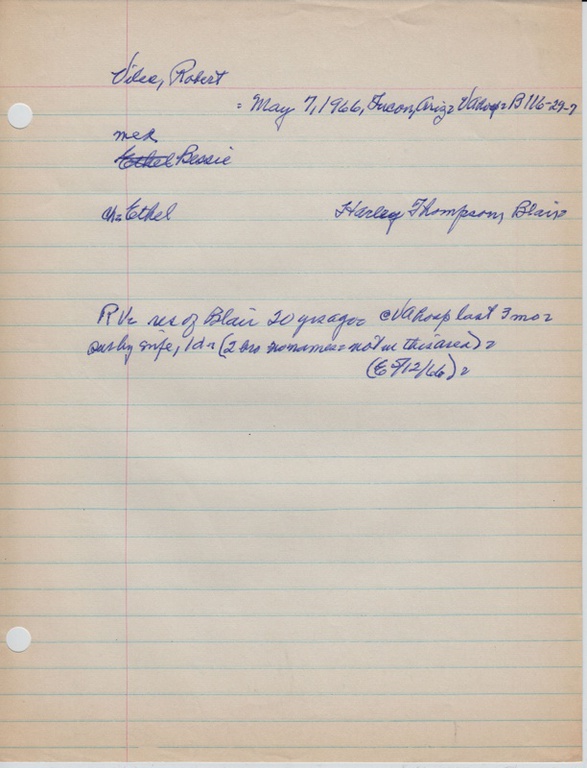 Vilce, Robert
= May 7, 1966, Tucson, Ariz= VA hosp= B 1/6-29-7
mer
Ethel Bessie
ch= Ethel Harley Thompson, Blair=
RV= res of Blair 20 yrs ago= @ VA hosp last 3 mo=
sur by wife, 1 d= (2 bro no names= not in this area)=
(E=5/12/66)=